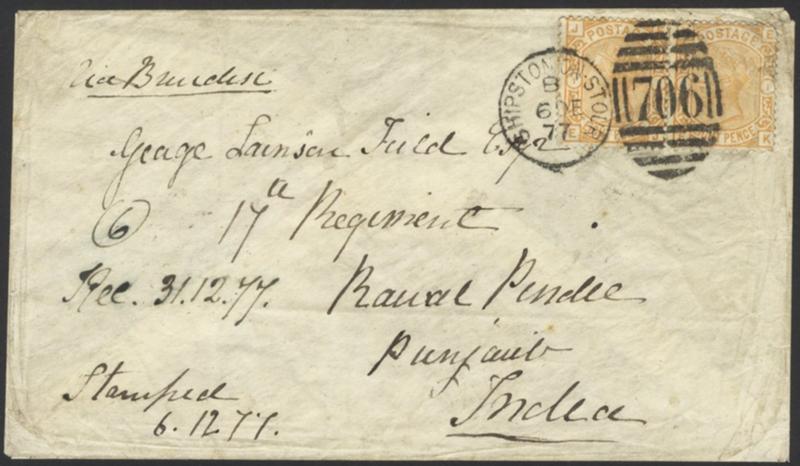 Via Brindisi
SHIPSTON ON STOUR
B
6 DE
77
706
J
POSTAGE
POSTAGE
E
PENCE
K
George Lainson Field Esqr
6 17th Regiment
Rec. 31.12.77.
Rawal Pindee
Punjaub
India
Stamped
6.12.77.